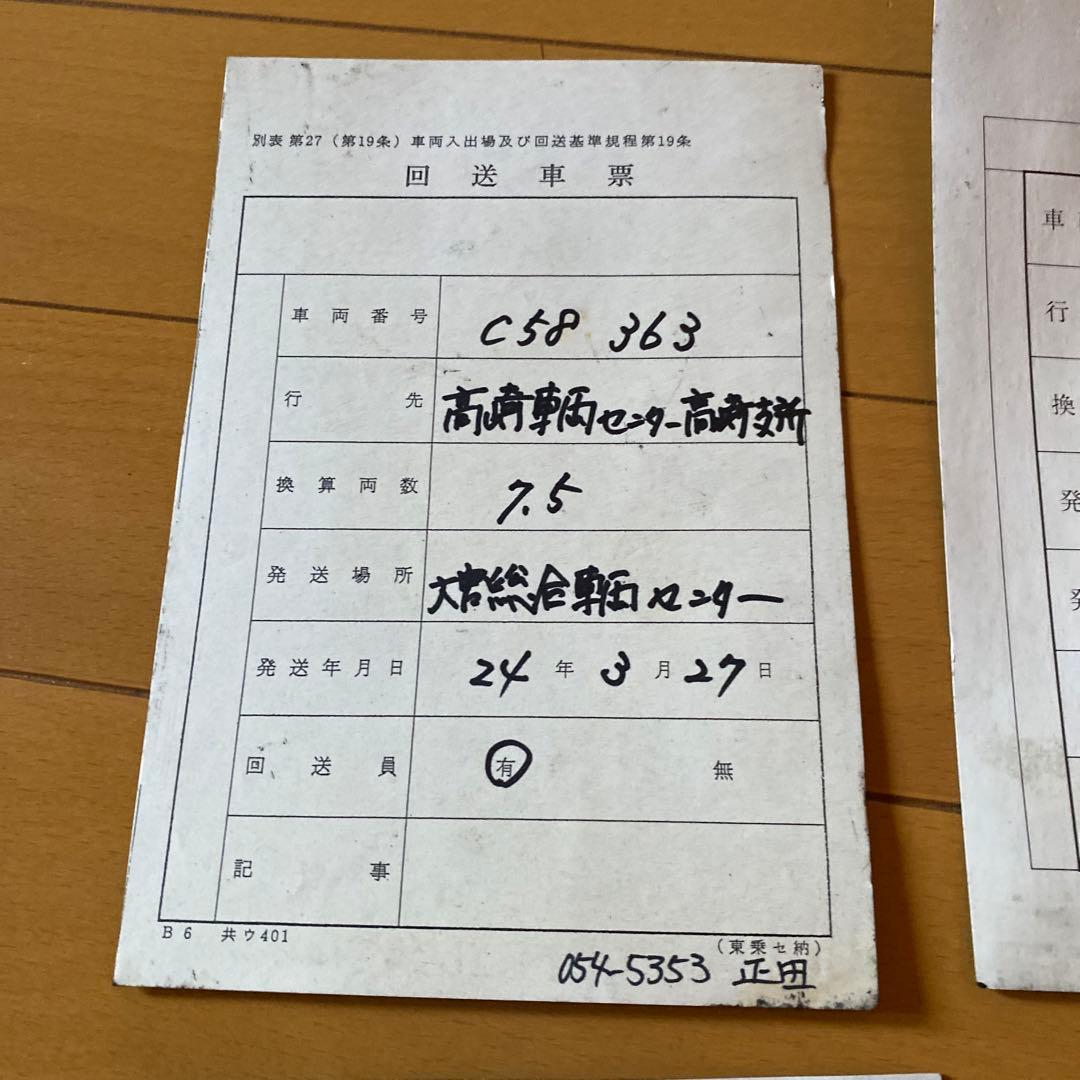 別表 第27（第19条）車両入出場及び回送基準規程第19条
回送車票
車両番号 C58 363
行先 高崎車両センター高崎支所
換算両数 7.5
発送場所 大宮総合車両センター
発送年月日 24年3月27日
回送員 有 無
記事
B6 共ウ401
（東乗セ納）
054-5353 正田
車
行
換
発
発